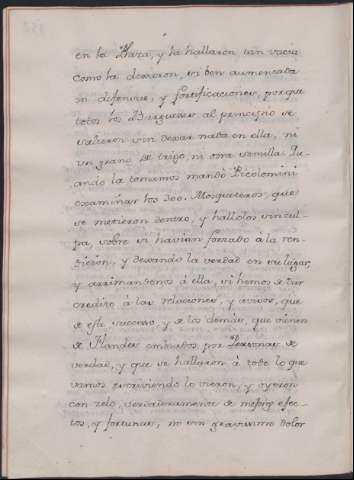 en la Plaza, y la hallaron tan vacia
como la dexaron, si bien aumentada
en defensas, y fortificaciones, porque
todos los Burgueses al principio se
salieron sin dexar nada en ella, ni
un grano de trigo, ni otra semilla. Qu-
ando la tomamos mandó Picolomini
examinar los 300. Mosqueteros, que
se metieron dentro, y hallolos sin cul-
pa, sobre si havian forzado á la ren-
dicion, y dexando la verdad en su lugar,
y arrimandonos á ella, si hemos de dar
credito á las relaciones, y avisos, que
de este suceso, y de los demás, que vienen
de Flandes embiados, por Personas de
verdad, y que se hallaron á todo lo que
vamos escriviendo lo vieron, y oyeron
con zelo, verdaderamente de mejores efec-
tos, y fortunas, no sin gravisimo dolor